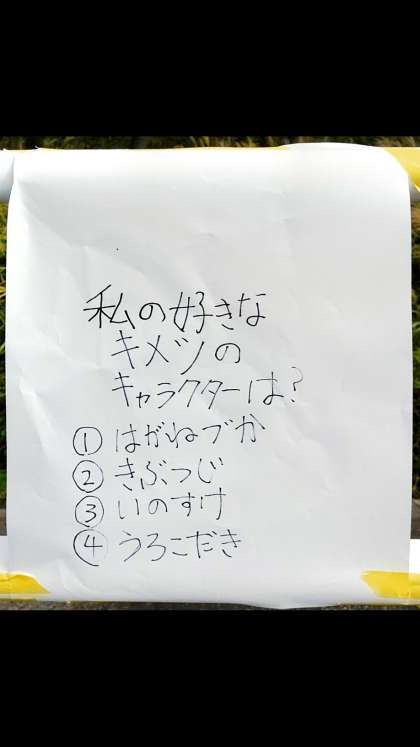 私の好きな
キメツの
キャラクターは?
① はがねづか
② きぶつじ
③ いのすけ
④ うろこだき